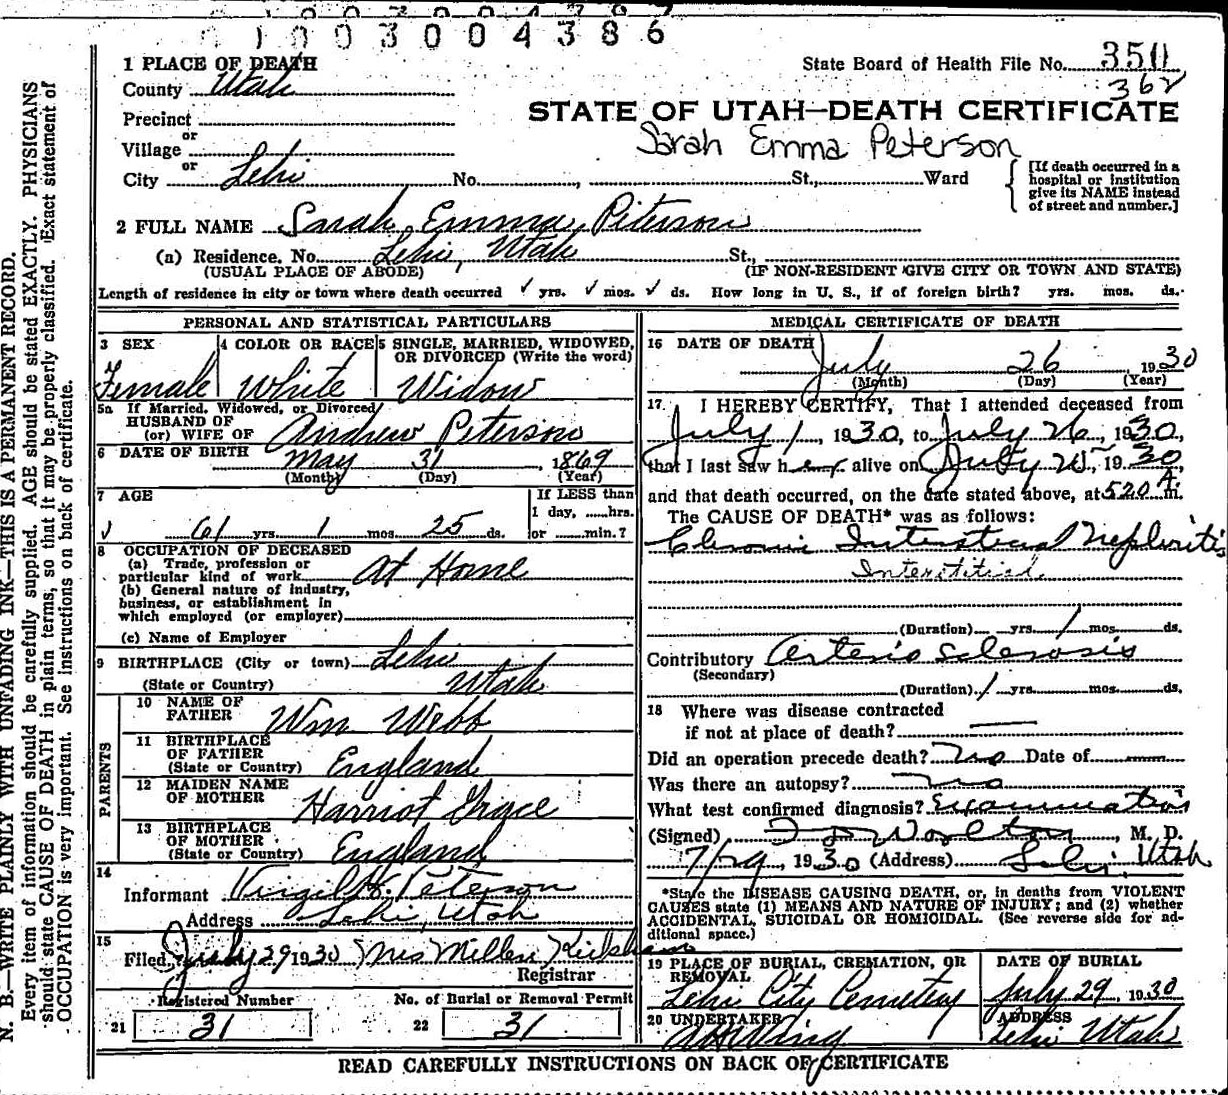 1003004386
1 PLACE OF DEATH
State Board of Health File No. 350
362
County Utah
STATE OF UTAH—DEATH CERTIFICATE
Precinct
Sarah Emma Peterson
or
Village
or
City Lehi No. , St., Ward
[If death occurred in a
hospital or institution
give its NAME instead
of street and number.]
2 FULL NAME Sarah Emma Peterson
(a) Residence. No. Lehi, Utah St.,
(USUAL PLACE OF ABODE) (IF NON-RESIDENT GIVE CITY OR TOWN AND STATE)
Length of residence in city or town where death occurred ✓ yrs. ✓ mos. ✓ ds. How long in U. S., if of foreign birth? yrs. mos. ds.
PERSONAL AND STATISTICAL PARTICULARS
3 SEX 4 COLOR OR RACE 5 SINGLE, MARRIED, WIDOWED,
OR DIVORCED (Write the word)
Female White Widow
5a If Married, Widowed, or Divorced
HUSBAND OF
(or) WIFE OF Andrew Peterson
6 DATE OF BIRTH May 31, 1869
(Month) (Day) (Year)
7 AGE If LESS than
1 day, ......hrs.
61 yrs. 1 mos. 25 ds. or ......min.?
8 OCCUPATION OF DECEASED
(a) Trade, profession or
particular kind of work At Home
(b) General nature of industry,
business, or establishment in
which employed (or employer)
(c) Name of Employer
9 BIRTHPLACE (City or town) Lehi
(State or Country) Utah
PARENTS
10 NAME OF
FATHER Wm Webb
11 BIRTHPLACE
OF FATHER
(State or Country) England
12 MAIDEN NAME
OF MOTHER Harriot Grace
13 BIRTHPLACE
OF MOTHER
(State or Country) England
14
Informant Virgil H. Peterson
Address Lehi, Utah
15
Filed, July 29 1930 Mrs Millen Kirkham
Registrar
Registered Number No. of Burial or Removal Permit
21 31 22 31
MEDICAL CERTIFICATE OF DEATH
16 DATE OF DEATH
July 26, 1930
(Month) (Day) (Year)
17 I HEREBY CERTIFY, That I attended deceased from
July 1, 1930, to July 26, 1930,
that I last saw her alive on July 25, 1930,
and that death occurred, on the date stated above, at 520 A. m.
The CAUSE OF DEATH* was as follows:
Chronic Interstitial Nephritis
Interstitial
(Duration) yrs. 1 mos. ds.
Contributory Arterio Sclerosis
(Secondary)
(Duration) 1 yrs. mos. ds.
18 Where was disease contracted
if not at place of death?
Did an operation precede death? no Date of
Was there an autopsy? no
What test confirmed diagnosis? Examination
(Signed) Worlton, M. D.
7/29, 1930 (Address) Lehi, Utah
*State the DISEASE CAUSING DEATH, or, in deaths from VIOLENT
CAUSES state (1) MEANS AND NATURE OF INJURY; and (2) whether
ACCIDENTAL, SUICIDAL OR HOMICIDAL. (See reverse side for ad-
ditional space.)
19 PLACE OF BURIAL, CREMATION, OR
REMOVAL
Lehi City Cemetery
DATE OF BURIAL
July 29, 1930
20 UNDERTAKER
Wing
ADDRESS
Lehi Utah
READ CAREFULLY INSTRUCTIONS ON BACK OF CERTIFICATE
N. B.—WRITE PLAINLY WITH UNFADING INK—THIS IS A PERMANENT RECORD.
Every item of information should be carefully supplied. AGE should be stated EXACTLY. PHYSICIANS
should state CAUSE OF DEATH in plain terms, so that it may be properly classified. Exact statement of
OCCUPATION is very important. See instructions on back of certificate.